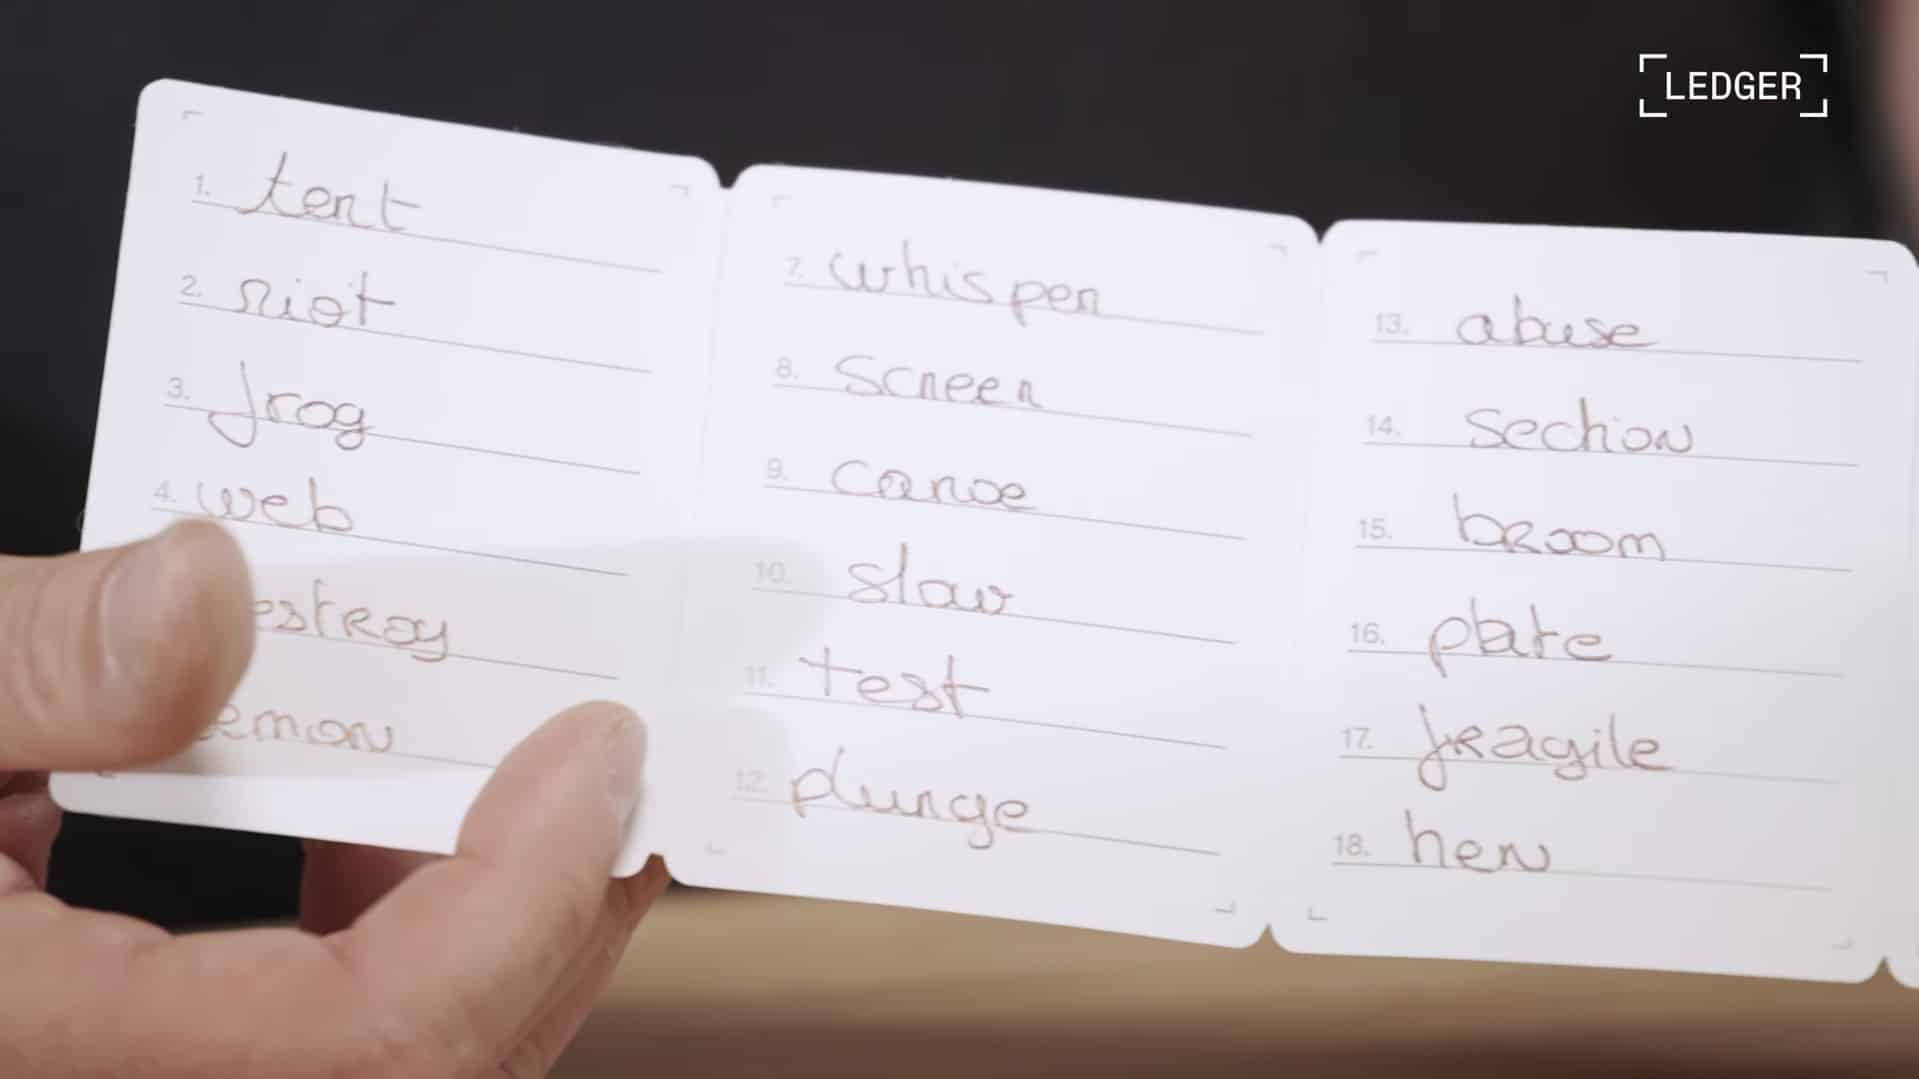 LEDGER
1. tent
2. riot
3. frog
4. web
estroy
emon
7. whisper
8. screen
9. canoe
10. slow
11. test
12. plunge
13. abuse
14. section
15. broom
16. plate
17. fragile
18. hen